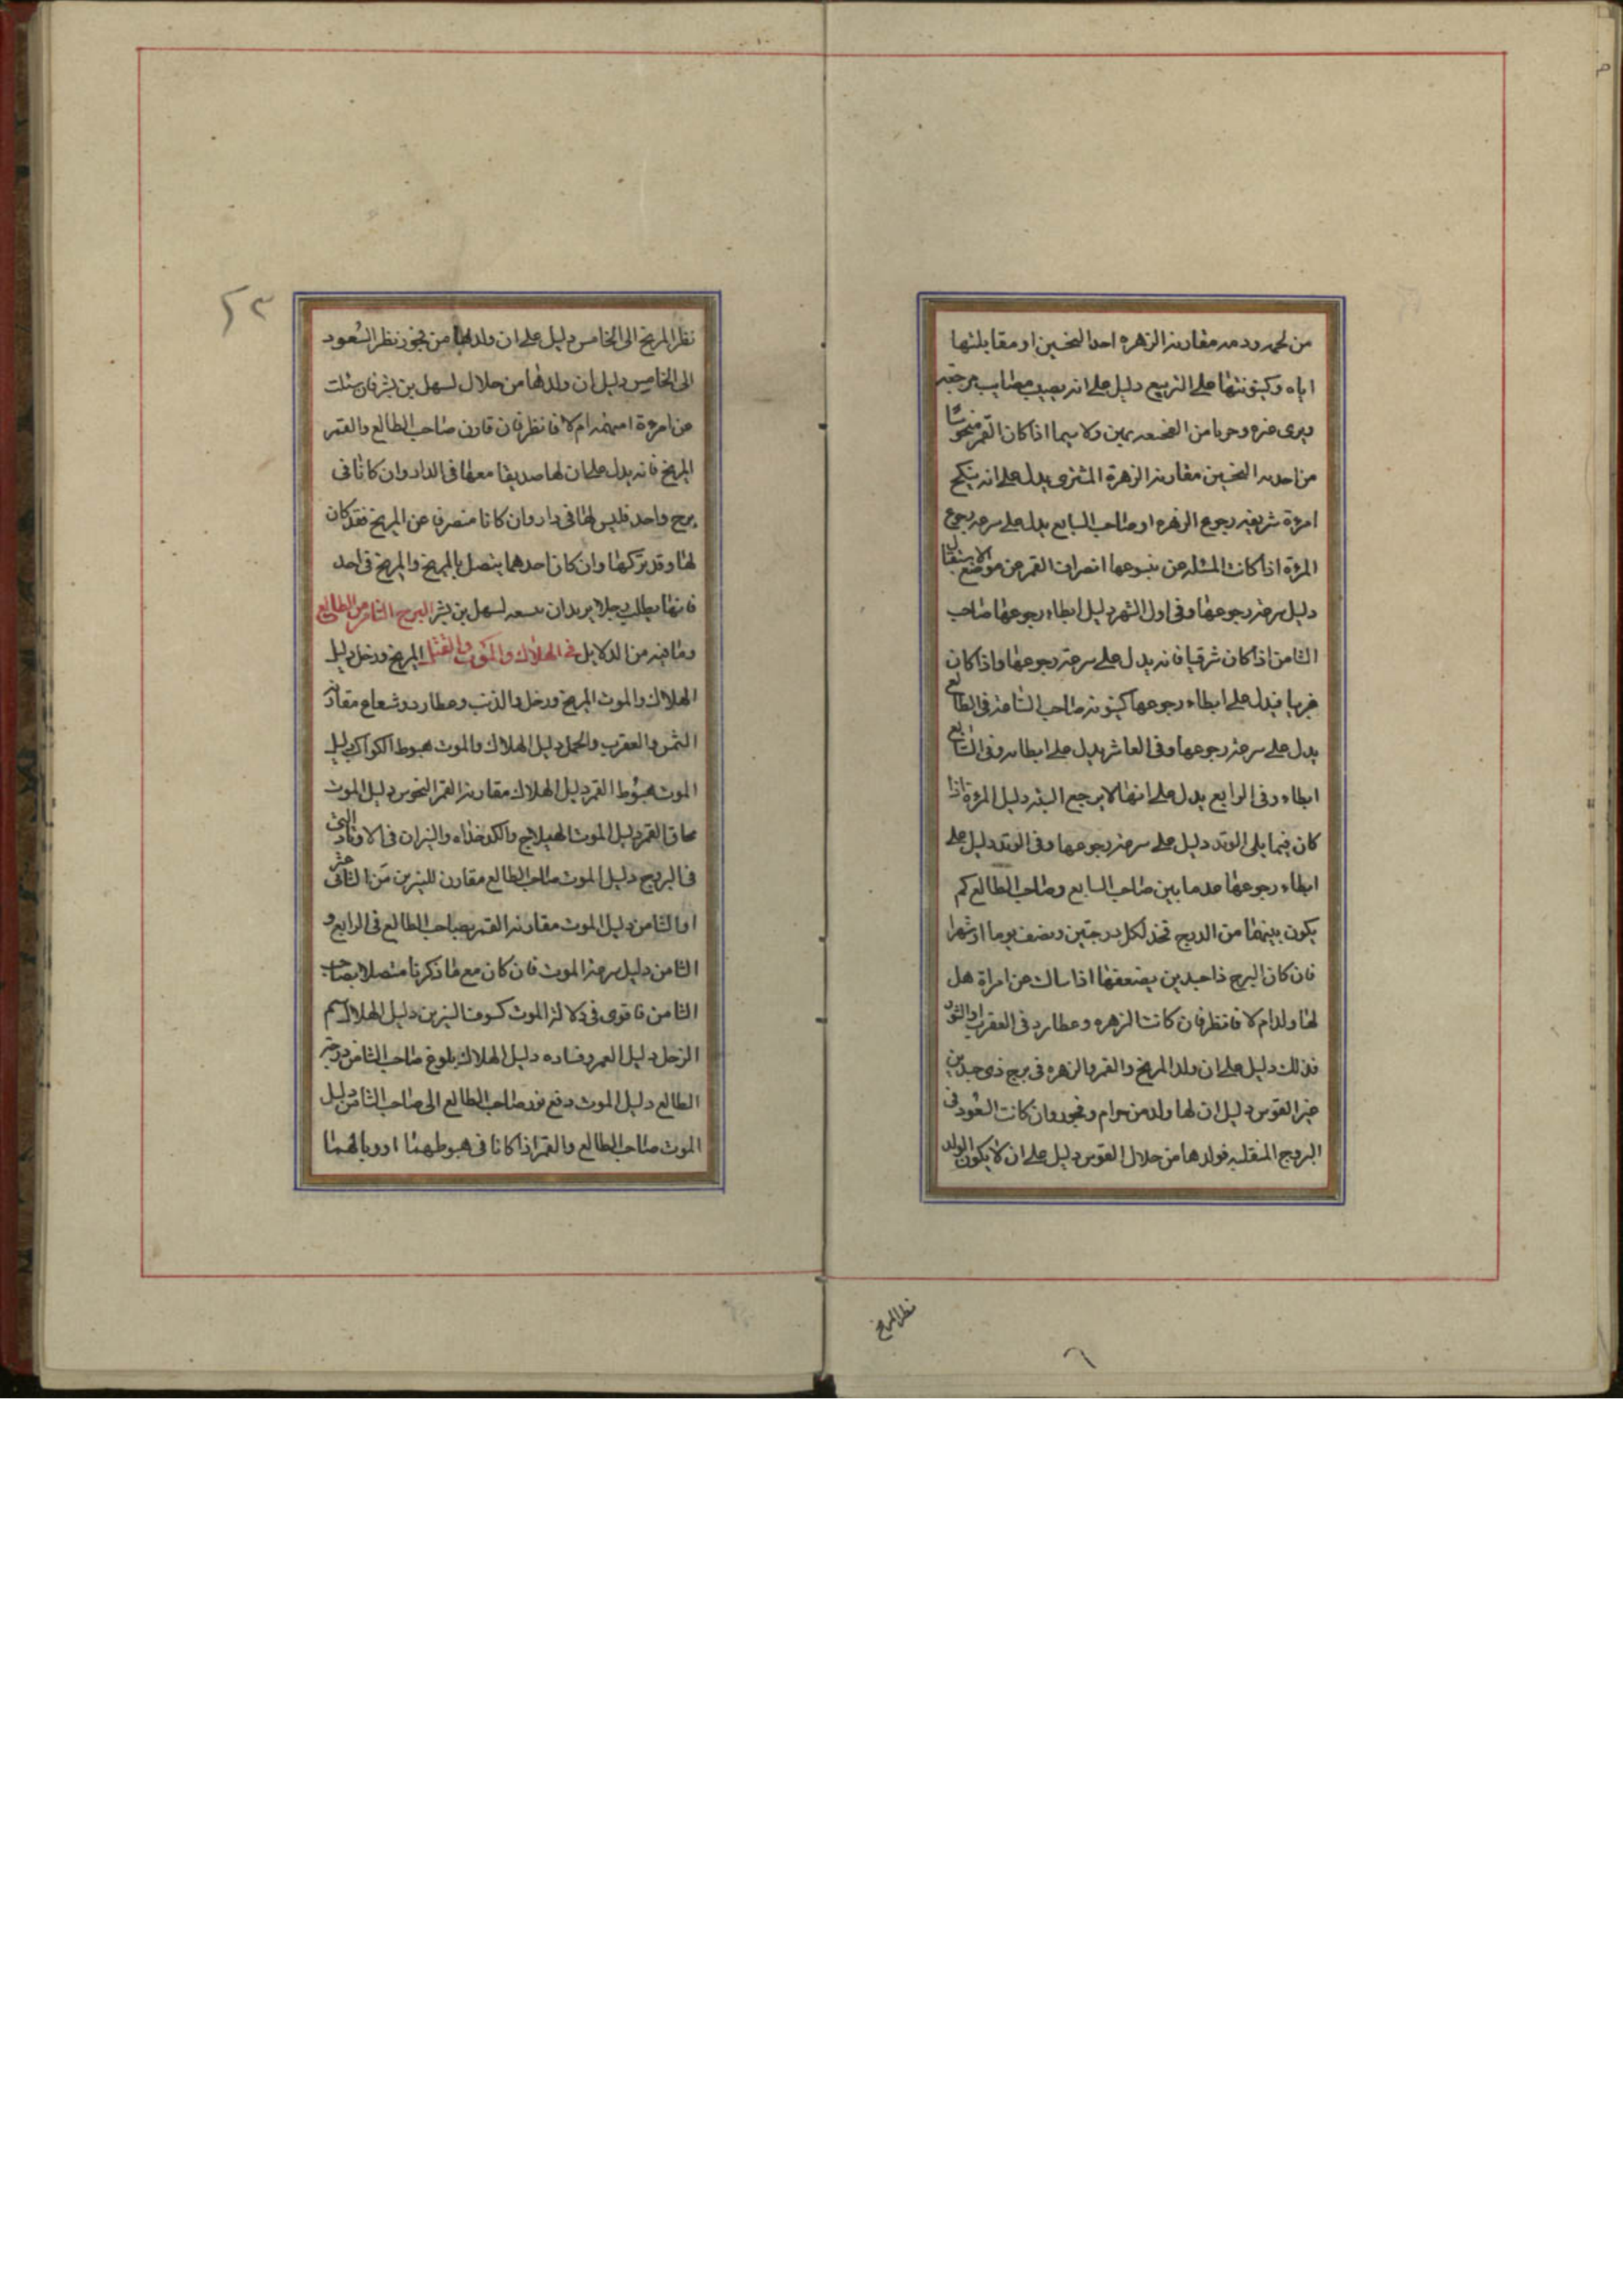 من مقارنة الزهره احد النحسين او مقابلتها
اياه وكينونتها على التربيع دليل على انه يصيب مصايب
ويرى ولا سيما اذا كان القمر منحوسا
من احد النحسين مقارنة الزهرة المشترى يدل على انه ينكح
امرءة شريفه رجوع الزهره او صاحب السابع يدل على سرعه رجوع
المرءة اذا كانت المسئله عن انصراف القمر عن موضع الاستقبال
دليل سرعة رجوعها وفى اول الشهر دليل ابطاء رجوعها صاحب
الثامن اذا كان شرقيا فانه يدل على سرعة رجوعها واذا كان
غربيا فيدل على ابطاء رجوعها كينونة صاحب الثامنة فى الطالع
يدل على سرعة رجوعها وفى العاشر يدل على ابطائه وفى السابع
ابطاء وفى الرابع يدل على انها لا يرجع البته دليل المرءة اذا
كان فيما يلى الوتد دليل على سرعة رجوعها وفى الوتد دليل على
ابطاء رجوعها ما بين صاحب السابع وصاحب الطالع كم
يكون بينهما من الدرج فخذ لكل درجتين ونصف يوما او شهرا
فان كان البرج ذا جسدين يضعفها اذا سالت عن امراة هل
لها ولد ام لا فانظر فان كانت الزهره وعطارد فى العقرب او الثور
فذلك دليل على ان ولد المريخ والقمر والزهره فى برج ذى جسدين
غير القوس دليل ان لها ولد من حرام وفجور وان كانت السعود فى
البروج المنقلبه فولدها من حلال القوس دليل على ان لا يكون الولد
نظر المريخ
٢٣
نظر المريخ الى الخامس دليل على ان ولدها من فجور نظر السعود
الى الخامس دليل ان ولدها من حلال لسهل بن بشر فان سئلت
عن امرءة ام لا فانظر فان قارن صاحب الطالع والقمر
المريخ فانه يدل على ان لها صديقا معها فى الدار وان كانا فى
برج واحد فليس لها فى دار وان كانا منصرف عن المريخ فقد كان
لها وقد تركها وان كان احدهما يتصل بالمريخ والمريخ فى احد
فانها يطلب رجلا يريد ان لسهل بن بشر البرج الثامن من الطالع
وما فيه من الدلايل فى الهلاك والموت والقتل المريخ وزحل دليل
الهلاك والموت المريخ وزحل والذنب وعطارد وشعاع مقارنة
الشمس والعقرب والحمل دليل الهلاك والموت هبوط الكواكب دليل
الموت هبوط القمر دليل الهلاك مقارنة القمر النحوس دليل الموت
محاق القمر دليل الموت الهيلاج والكدخذاه والنيران فى الاوتاد التى
فى البروج دليل الموت صاحب الطالع مقارن للنيرين من الثانى عشر
او الثامن دليل الموت مقارنة القمر بصاحب الطالع فى الرابع و
الثامن دليل سرعة الموت فان كان مع ما ذكرنا متصلا بصاحب
الثامن فاقوى فى دلالة الموت كسوف النيرين دليل الهلاك سهم
الزحل دليل العمر وفساده دليل الهلاك بلوغ صاحب الثامن درجة
الطالع دليل الموت دفع نور صاحب الطالع الى صاحب الثامن دليل
الموت صاحب الطالع والقمر اذا كانا فى هبوطهما او وبالهما